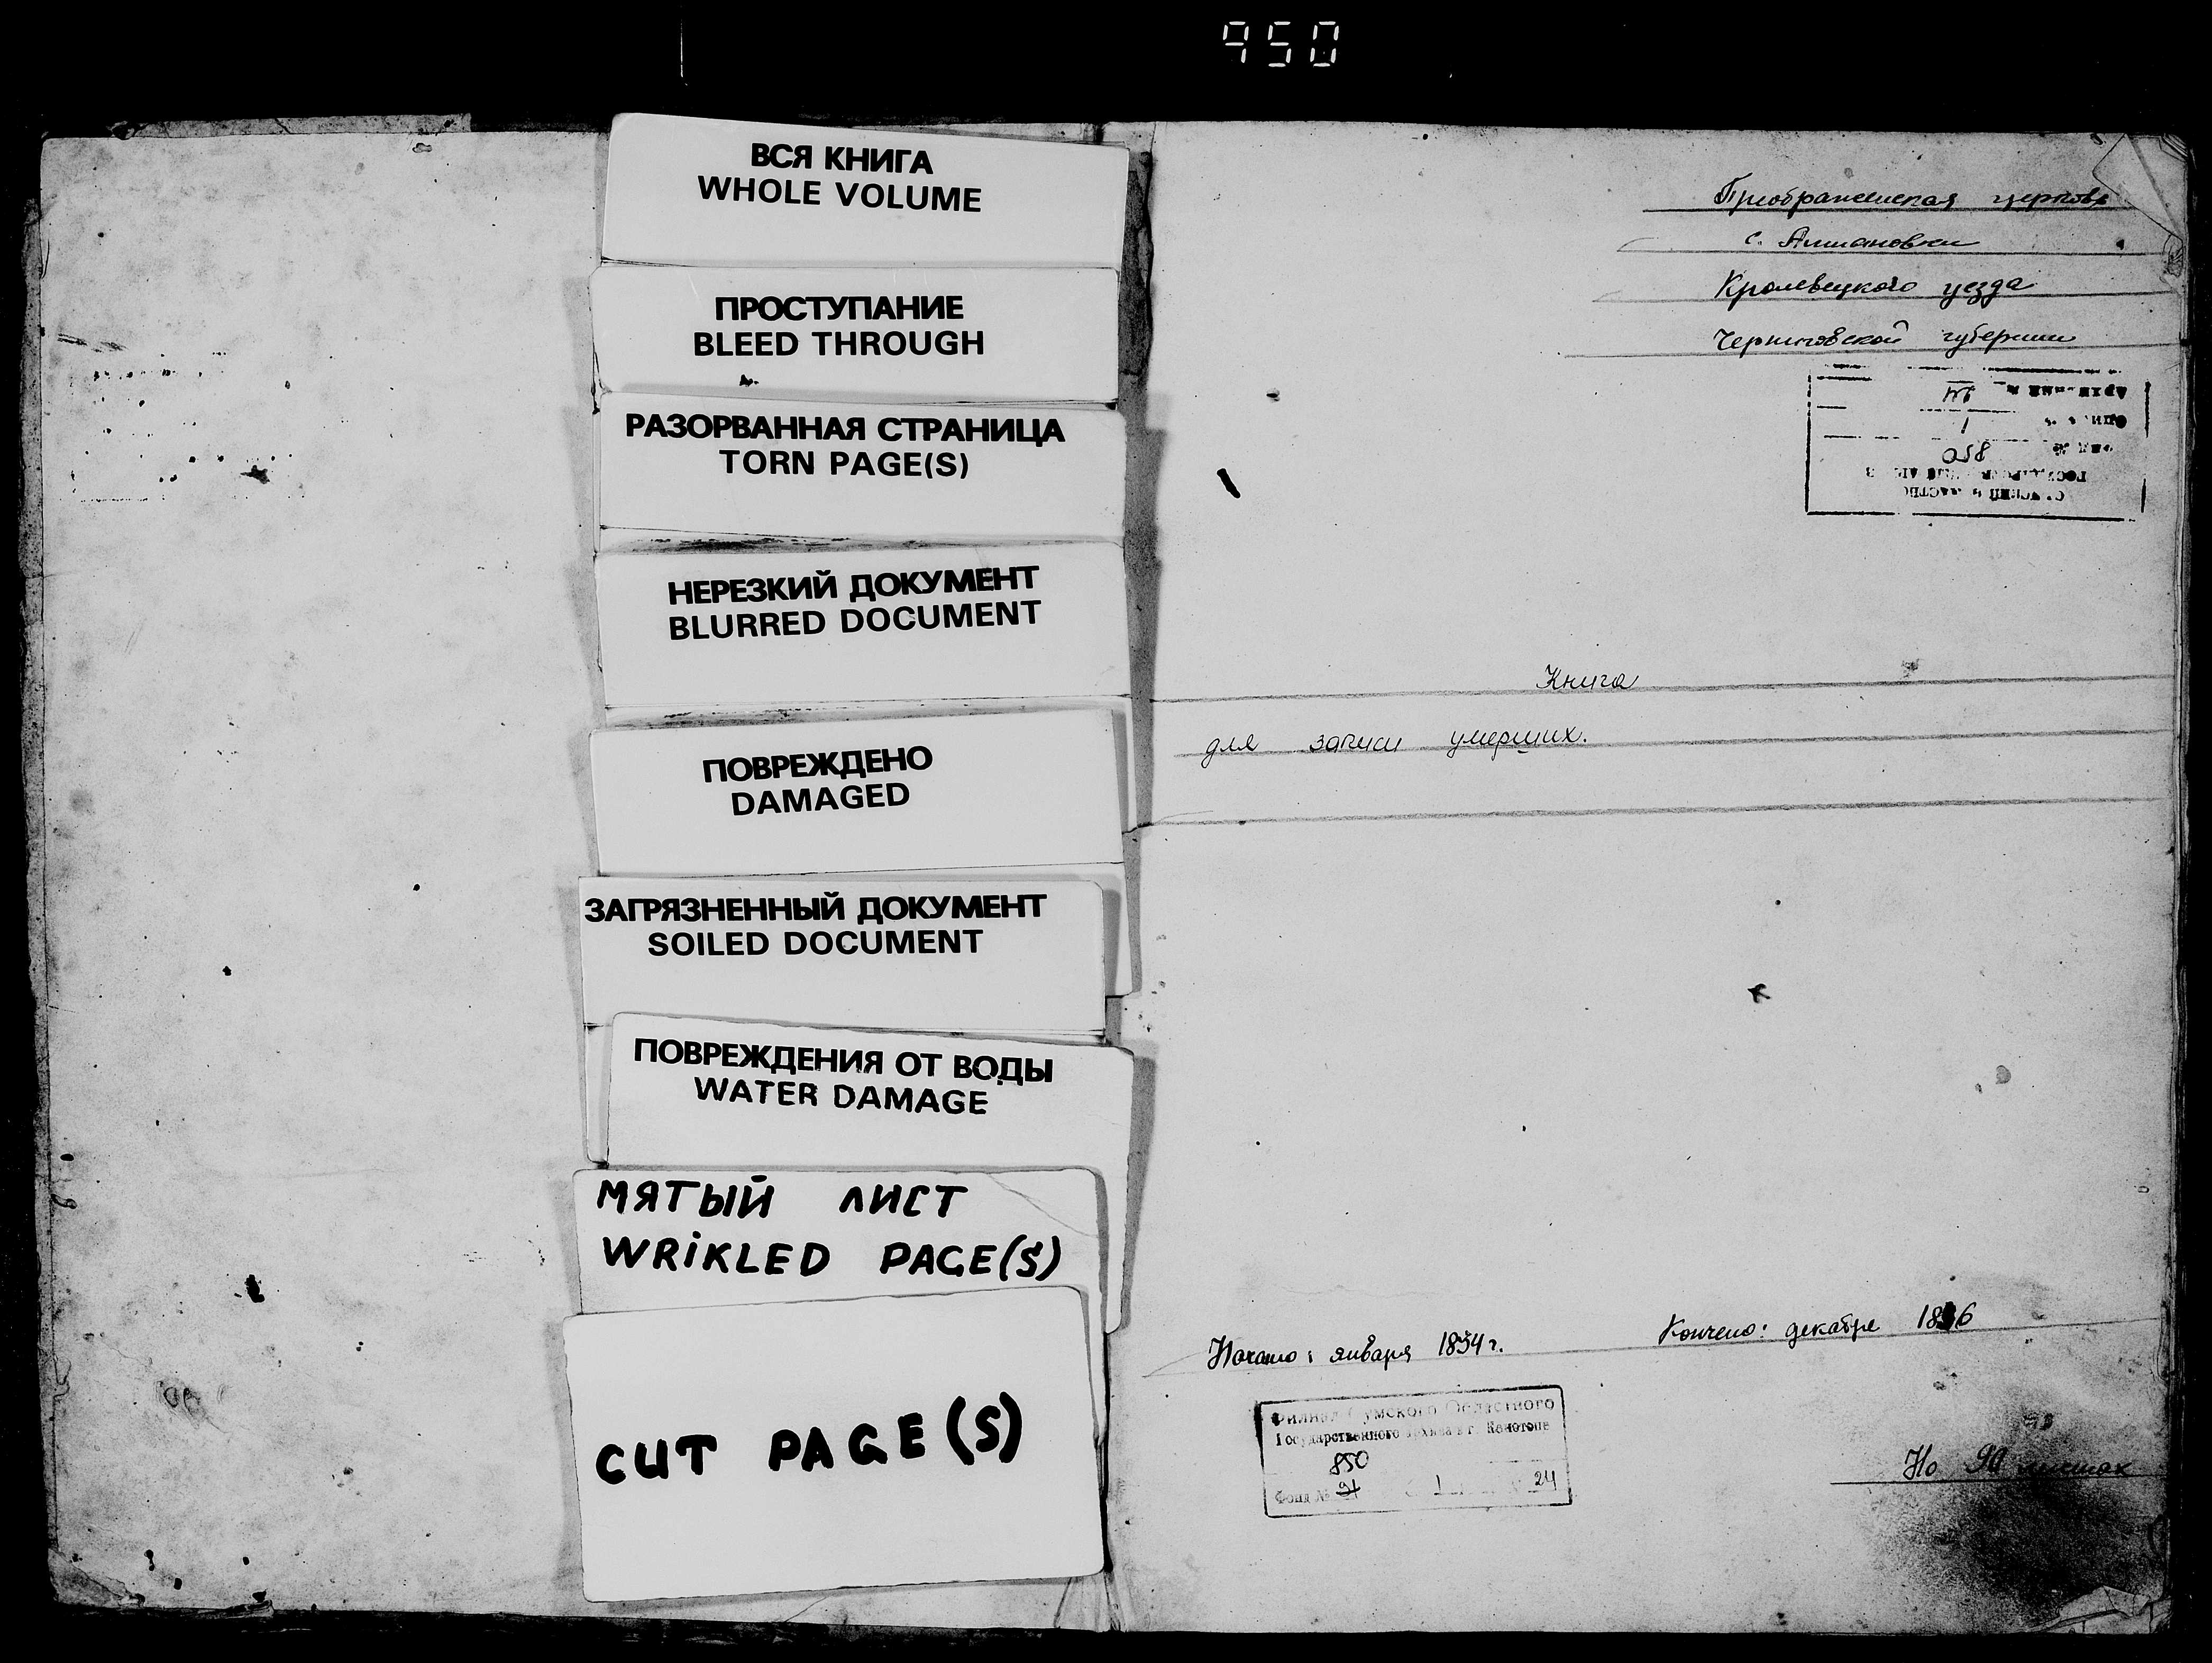 950
ВСЯ КНИГА
WHOLE VOLUME
ПРОСТУПАНИЕ
BLEED THROUGH
РАЗОРВАННАЯ СТРАНИЦА
TORN PAGE(S)
НЕРЕЗКИЙ ДОКУМЕНТ
BLURRED DOCUMENT
ПОВРЕЖДЕНО
DAMAGED
ЗАГРЯЗНЕННЫЙ ДОКУМЕНТ
SOILED DOCUMENT
ПОВРЕЖДЕНИЯ ОТ ВОДЫ
WATER DAMAGE
МЯТЫЙ ЛИСТ
WRIKLED PAGE(S)
CUT PAGE(S)
Преображенская церковь
с.
Кролевецкого уезда
Черниговской губернии
850
Книга
для записи умерших.
Начато: января 1834 г.
Кончено: декабря
Филиал Сумского Областного
Государственного архива в г. Конотопе
850
Фонд № 91 1 24
На 90 листах